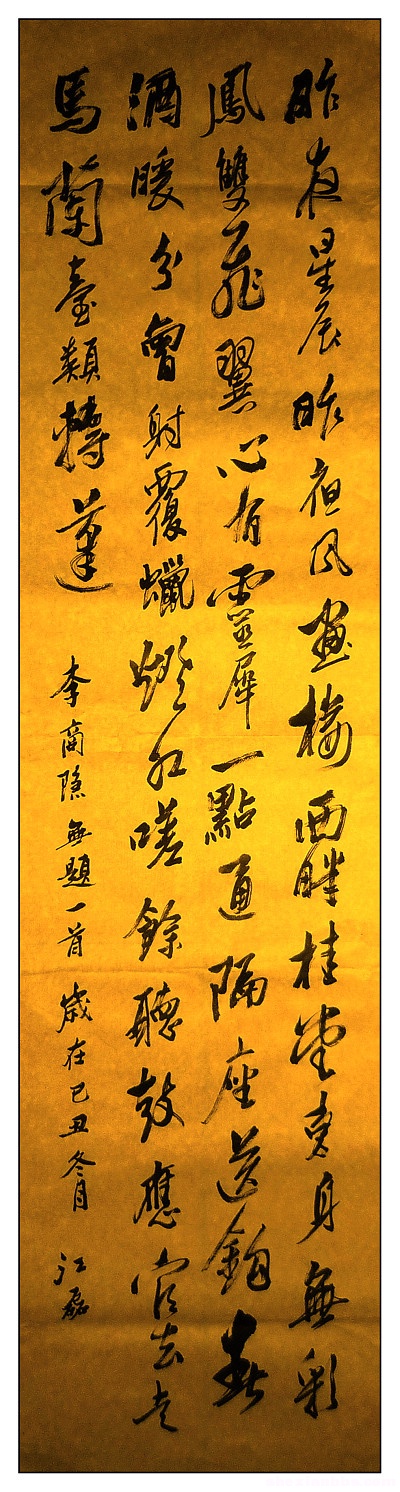 昨夜星辰昨夜风画楼西畔桂堂东身無彩
鳳雙飛翼心有靈犀一點通隔座送鉤春
酒暖分曹射覆蠟燈红嗟餘聽鼓應官去走
馬蘭臺類轉蓬
李商隐無題一首歲在己丑冬月江磊